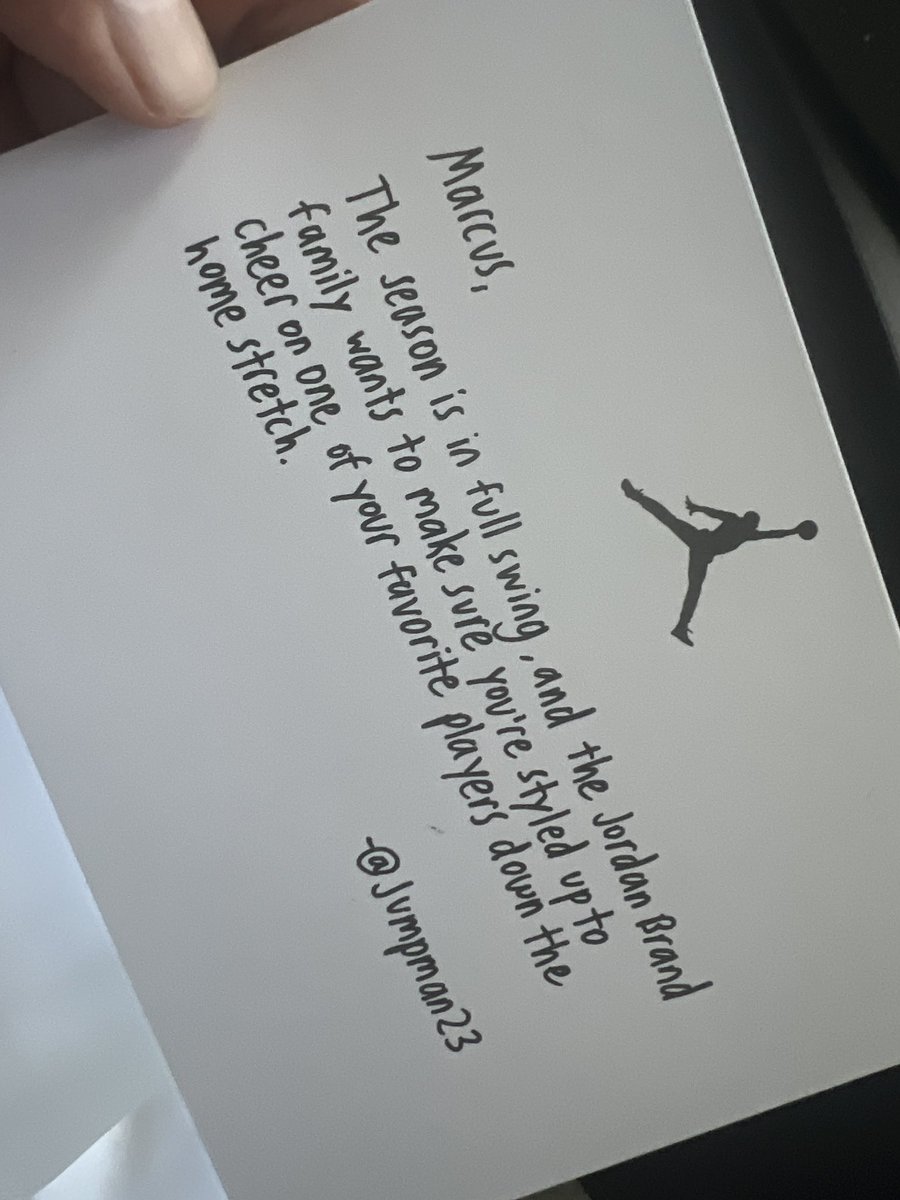 Marcus,
The season is in full swing, and the Jordan Brand
family wants to make sure you're styled up to
cheer on one of your favorite players down the
home stretch.
-@Jumpman23